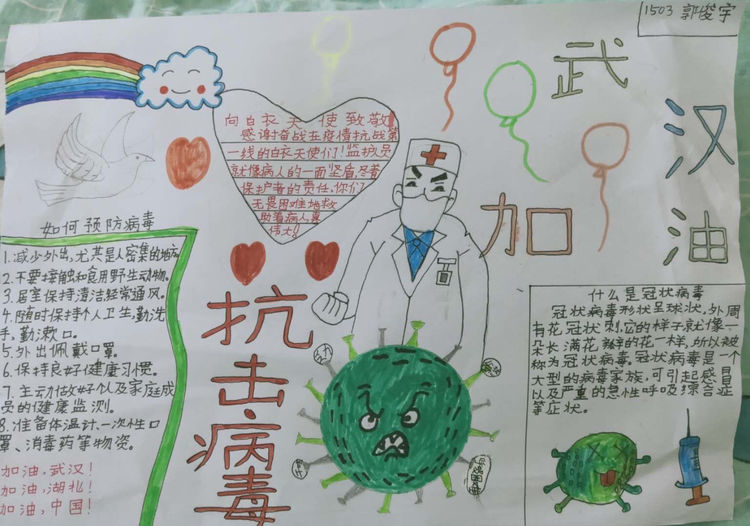 1503 郭俊宇
武汉
加油
向白衣天使致敬
感谢奋战在疫情抗战第
一线的白衣天使们!监护员
就像病人的一面坚盾尽着
保护者的责任,你们
无畏困难地救
助着病人最
伟大!
如何预防病毒
1.减少外出,尤其是人密集的地方
2.不要接触和食用野生动物。
3.居室保持清洁经常通风。
4.随时保持个人卫生,勤洗
手,勤漱口。
5.外出佩戴口罩。
6.保持良好健康习惯。
7.主动做好个人及家庭成
员的健康监测。
8.准备体温计、一次性口
罩、消毒药等物资。
加油,武汉!
加油,湖北!
加油,中国!
抗击病毒
什么是冠状病毒
冠状病毒形状呈球状,外周
有花冠状刺,它的样子就像一
朵长满花瓣的花一样,所以被
称为冠状病毒。冠状病毒是一个
大型的病毒家族,可引起感冒
以及严重的急性呼吸综合症
等症状。